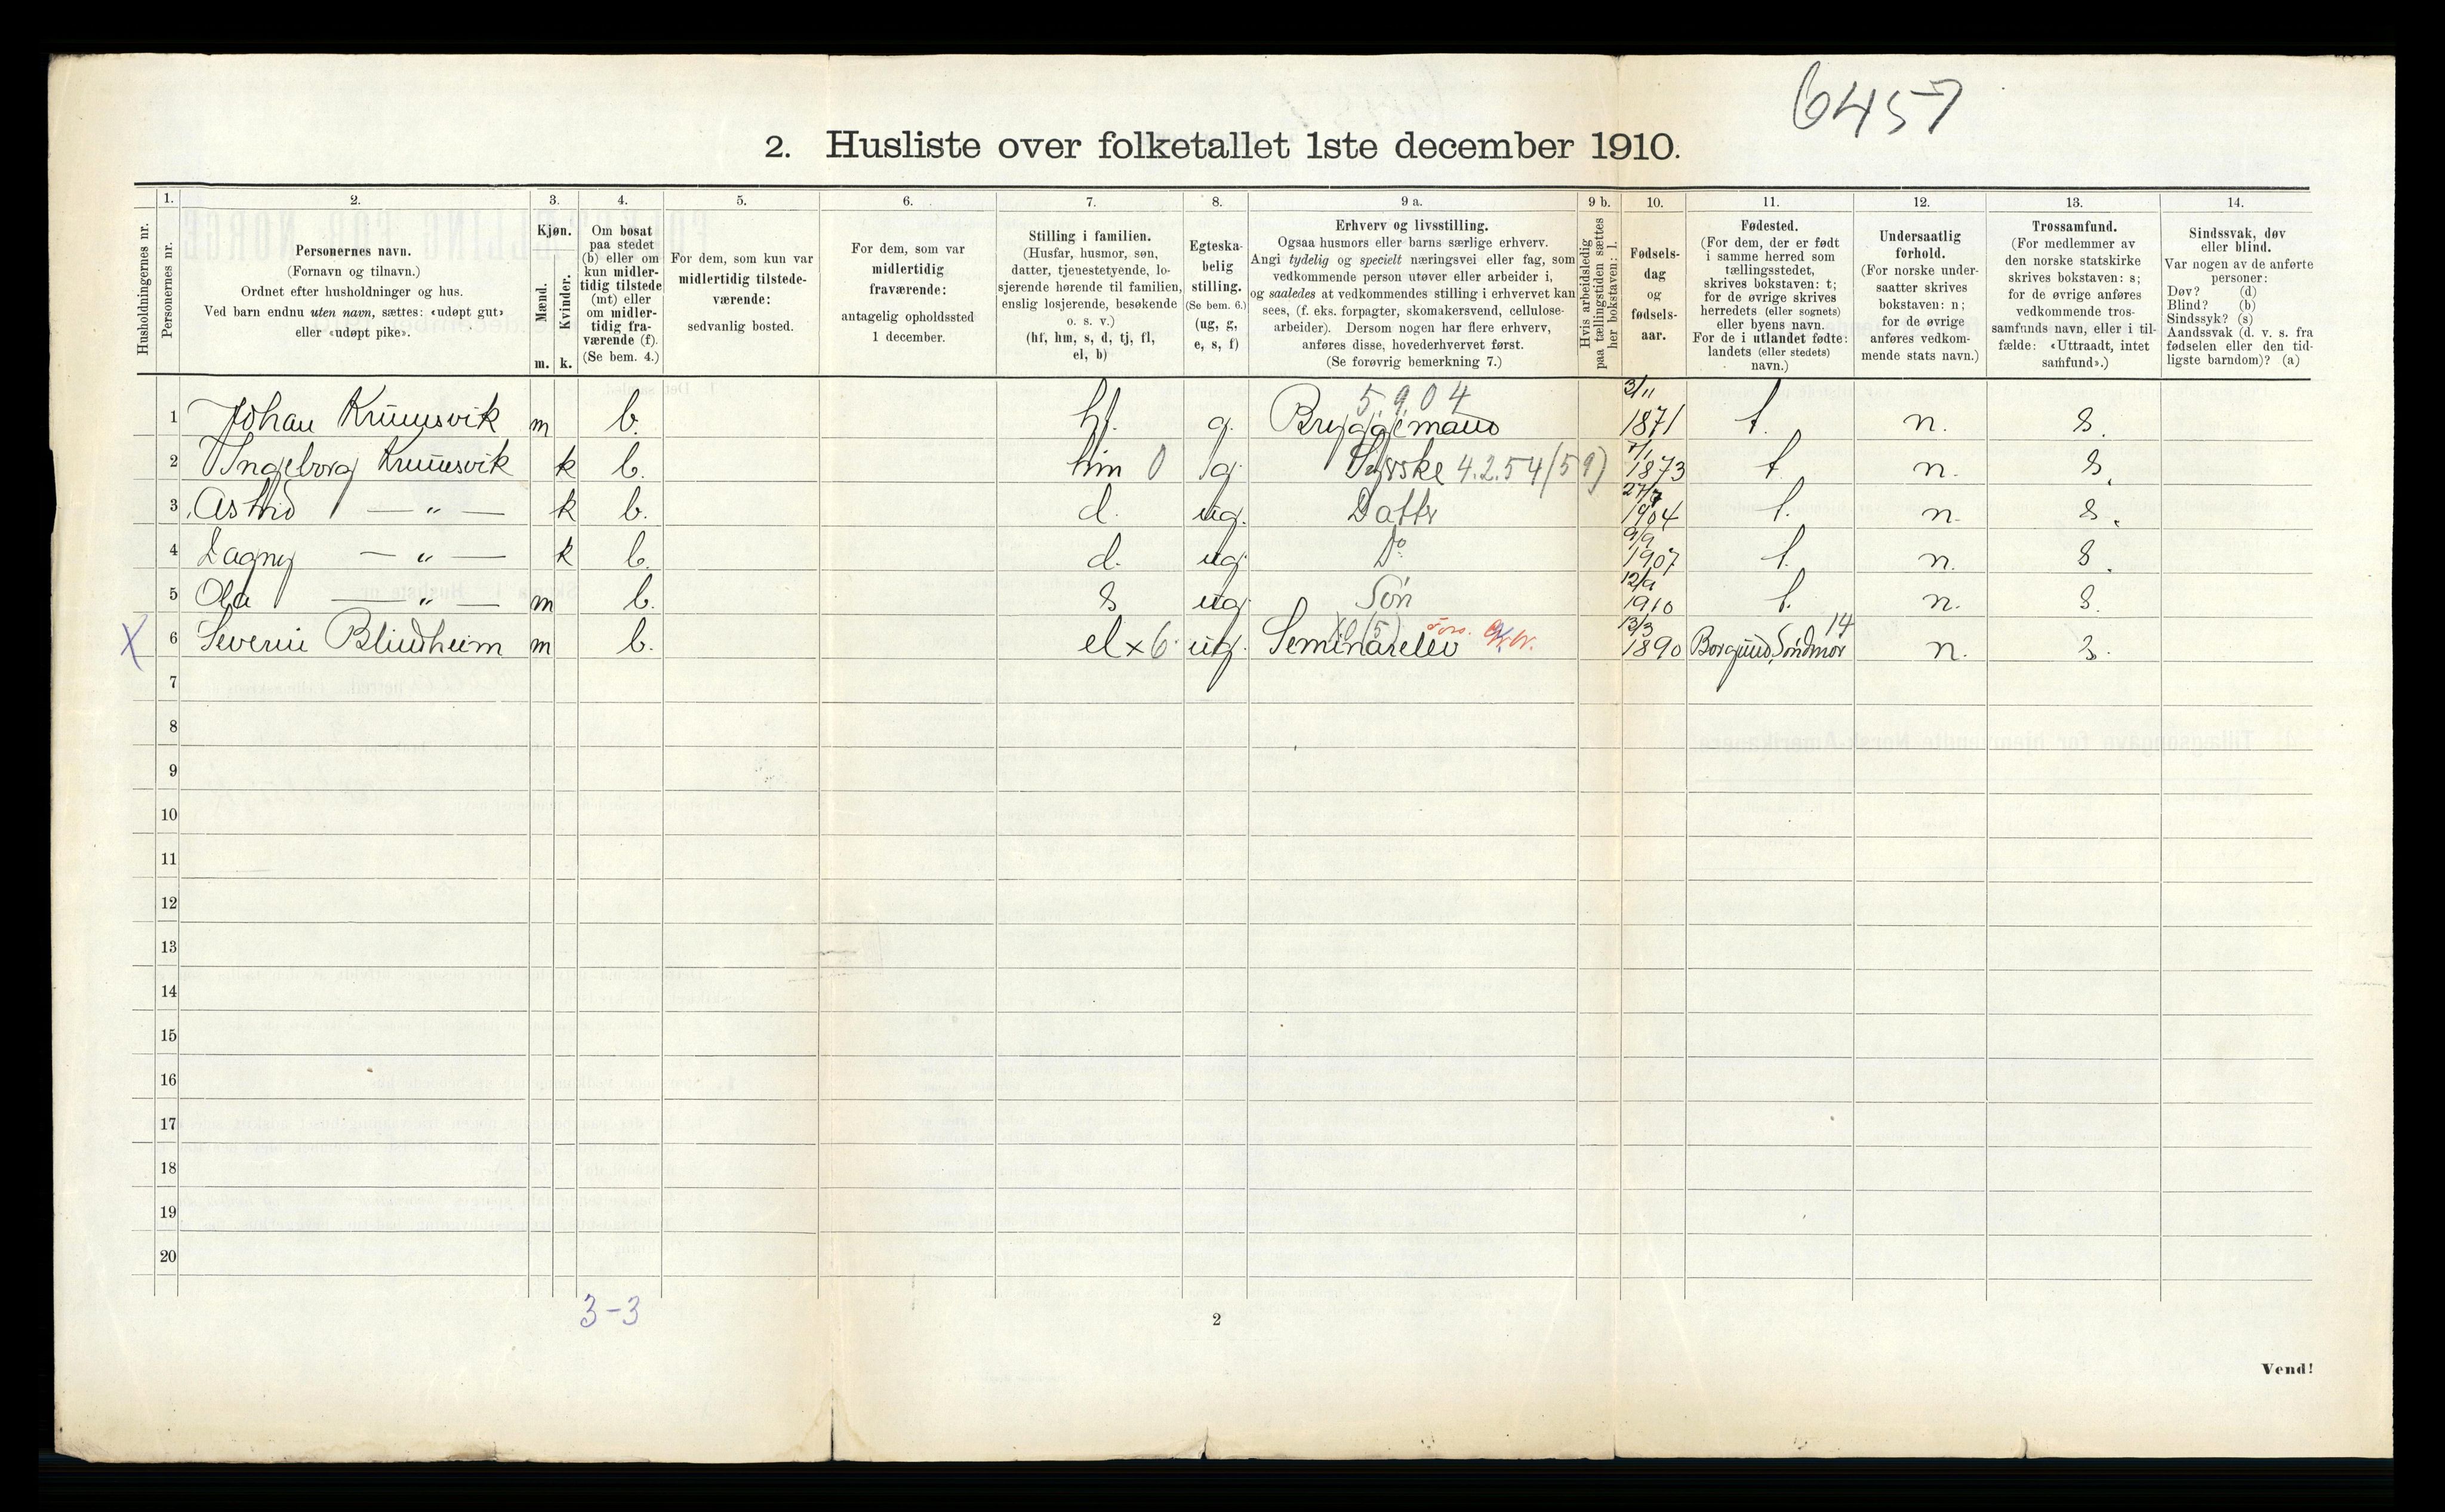 6457
2. Husliste over folketallet 1ste december 1910.
Husholdningernes nr.
1.
Personernes nr.
2.
Personernes navn.
(Fornavn og tilnavn.)
Ordnet efter husholdninger og hus.
Ved barn endnu uten navn, sættes: «udøpt gut»
eller «udøpt pike».
3.
Kjøn.
Mænd.
Kvinder.
m. k.
4.
Om bosat
paa stedet
(b) eller om
kun midler-
tidig tilstede
(mt) eller
om midler-
tidig fra-
værende (f).
(Se bem. 4.)
5.
For dem, som kun var
midlertidig tilstede-
værende:
sedvanlig bosted.
6.
For dem, som var
midlertidig
fraværende:
antagelig opholdssted
1 december.
7.
Stilling i familien.
(Husfar, husmor, søn,
datter, tjenestetyende, lo-
sjerende hørende til familien,
enslig losjerende, besøkende
o. s. v.)
(hf, hm, s, d, tj, fl,
el, b)
8.
Egteska-
belig
stilling.
(Se bem. 6.)
(ug, g,
e, s, f)
9 a.
Erhverv og livsstilling.
Ogsaa husmors eller barns særlige erhverv.
Angi tydelig og specielt næringsvei eller fag, som
vedkommende person utøver eller arbeider i,
og saaledes at vedkommendes stilling i erhvervet kan
sees, (f. eks. forpagter, skomakersvend, cellulose-
arbeider). Dersom nogen har flere erhverv,
anføres disse, hovederhvervet først.
(Se forøvrig bemerkning 7.)
9 b.
Hvis arbeidsledig
paa tællingstiden sættes
her bokstaven: l.
10.
Fødsels-
dag
og
fødsels-
aar.
11.
Fødested.
(For dem, der er født
i samme herred som
tællingsstedet,
skrives bokstaven: t;
for de øvrige skrives
herredets (eller sognets)
eller byens navn.
For de i utlandet fødte:
landets (eller stedets)
navn.)
12.
Undersaatlig
forhold.
(For norske under-
saatter skrives
bokstaven: n;
for de øvrige
anføres vedkom-
mende stats navn.)
13.
Trossamfund.
(For medlemmer av
den norske statskirke
skrives bokstaven: s;
for de øvrige anføres
vedkommende tros-
samfunds navn, eller i til-
fælde: «Uttraadt, intet
samfund».)
14.
Sindssvak, døv
eller blind.
Var nogen av de anførte
personer:
Døv? (d)
Blind? (b)
Sindssyk? (s)
Aandssvak (d. v. s. fra
fødselen eller den tid-
ligste barndom)? (a)
1 Johan Krumsvik m b. hf. g. 5.904 Bryggemand 3/11 1871 t. n. s.
2 Ingeborg Krumsvik k b. hm 0 g. 4.2.54 (59) 7/1 1873 t n. s.
3 Astrid — „ — k b. d. ug. Datter 27/7 1904 t. n. s.
4 Dagny — „ — k b. d. ug. Do 9/9 1907 t. n. s.
5 Ola — „ — m b. s ug. Søn 12/9 1910 t. n. s.
X 6 Severin Blindheim m b. el x 6. ug. Seminarelev 13/3 1890 Borgund, Søndmør 14 n. s.
7
8
9
10
11
12
13
14
15
16
17
18
19
20
3-3
2
Vend!